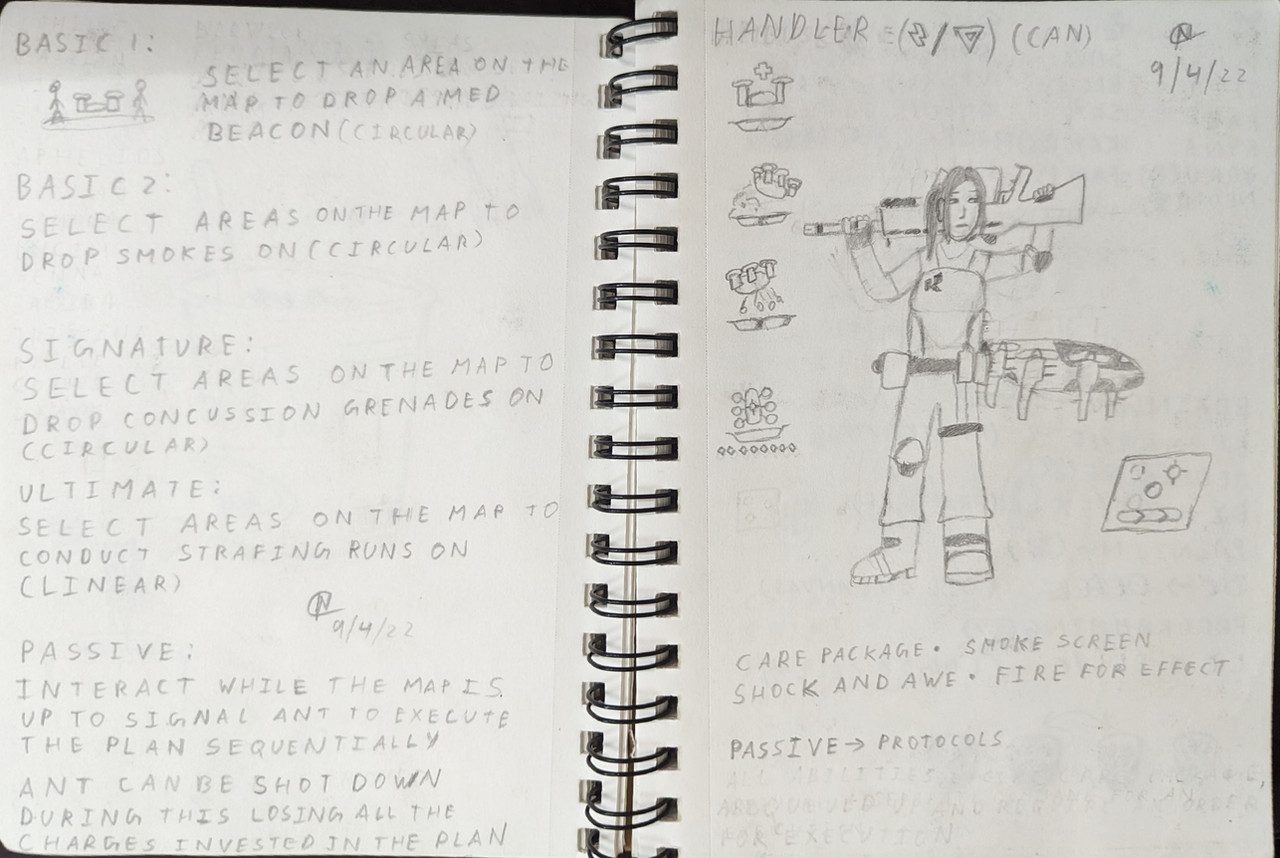 BASIC 1:
SELECT AN AREA ON THE
MAP TO DROP A MED
BEACON (CIRCULAR)
BASIC 2:
SELECT AREAS ON THE MAP TO
DROP SMOKES ON (CIRCULAR)
SIGNATURE:
SELECT AREAS ON THE MAP TO
DROP CONCUSSION GRENADES ON
(CIRCULAR)
ULTIMATE:
SELECT AREAS ON THE MAP TO
CONDUCT STRAFING RUNS ON
(LINEAR)
9/4/22
PASSIVE:
INTERACT WHILE THE MAP IS
UP TO SIGNAL ANT TO EXECUTE
THE PLAN SEQUENTIALLY
ANT CAN BE SHOT DOWN
DURING THIS LOSING ALL THE
CHARGES INVESTED IN THE PLAN
HANDLER = ( / ) (CAN)
9/4/22
CARE PACKAGE • SMOKE SCREEN
SHOCK AND AWE • FIRE FOR EFFECT
PASSIVE → PROTOCOLS
ALL ABILITIES
FOR EXECUTION